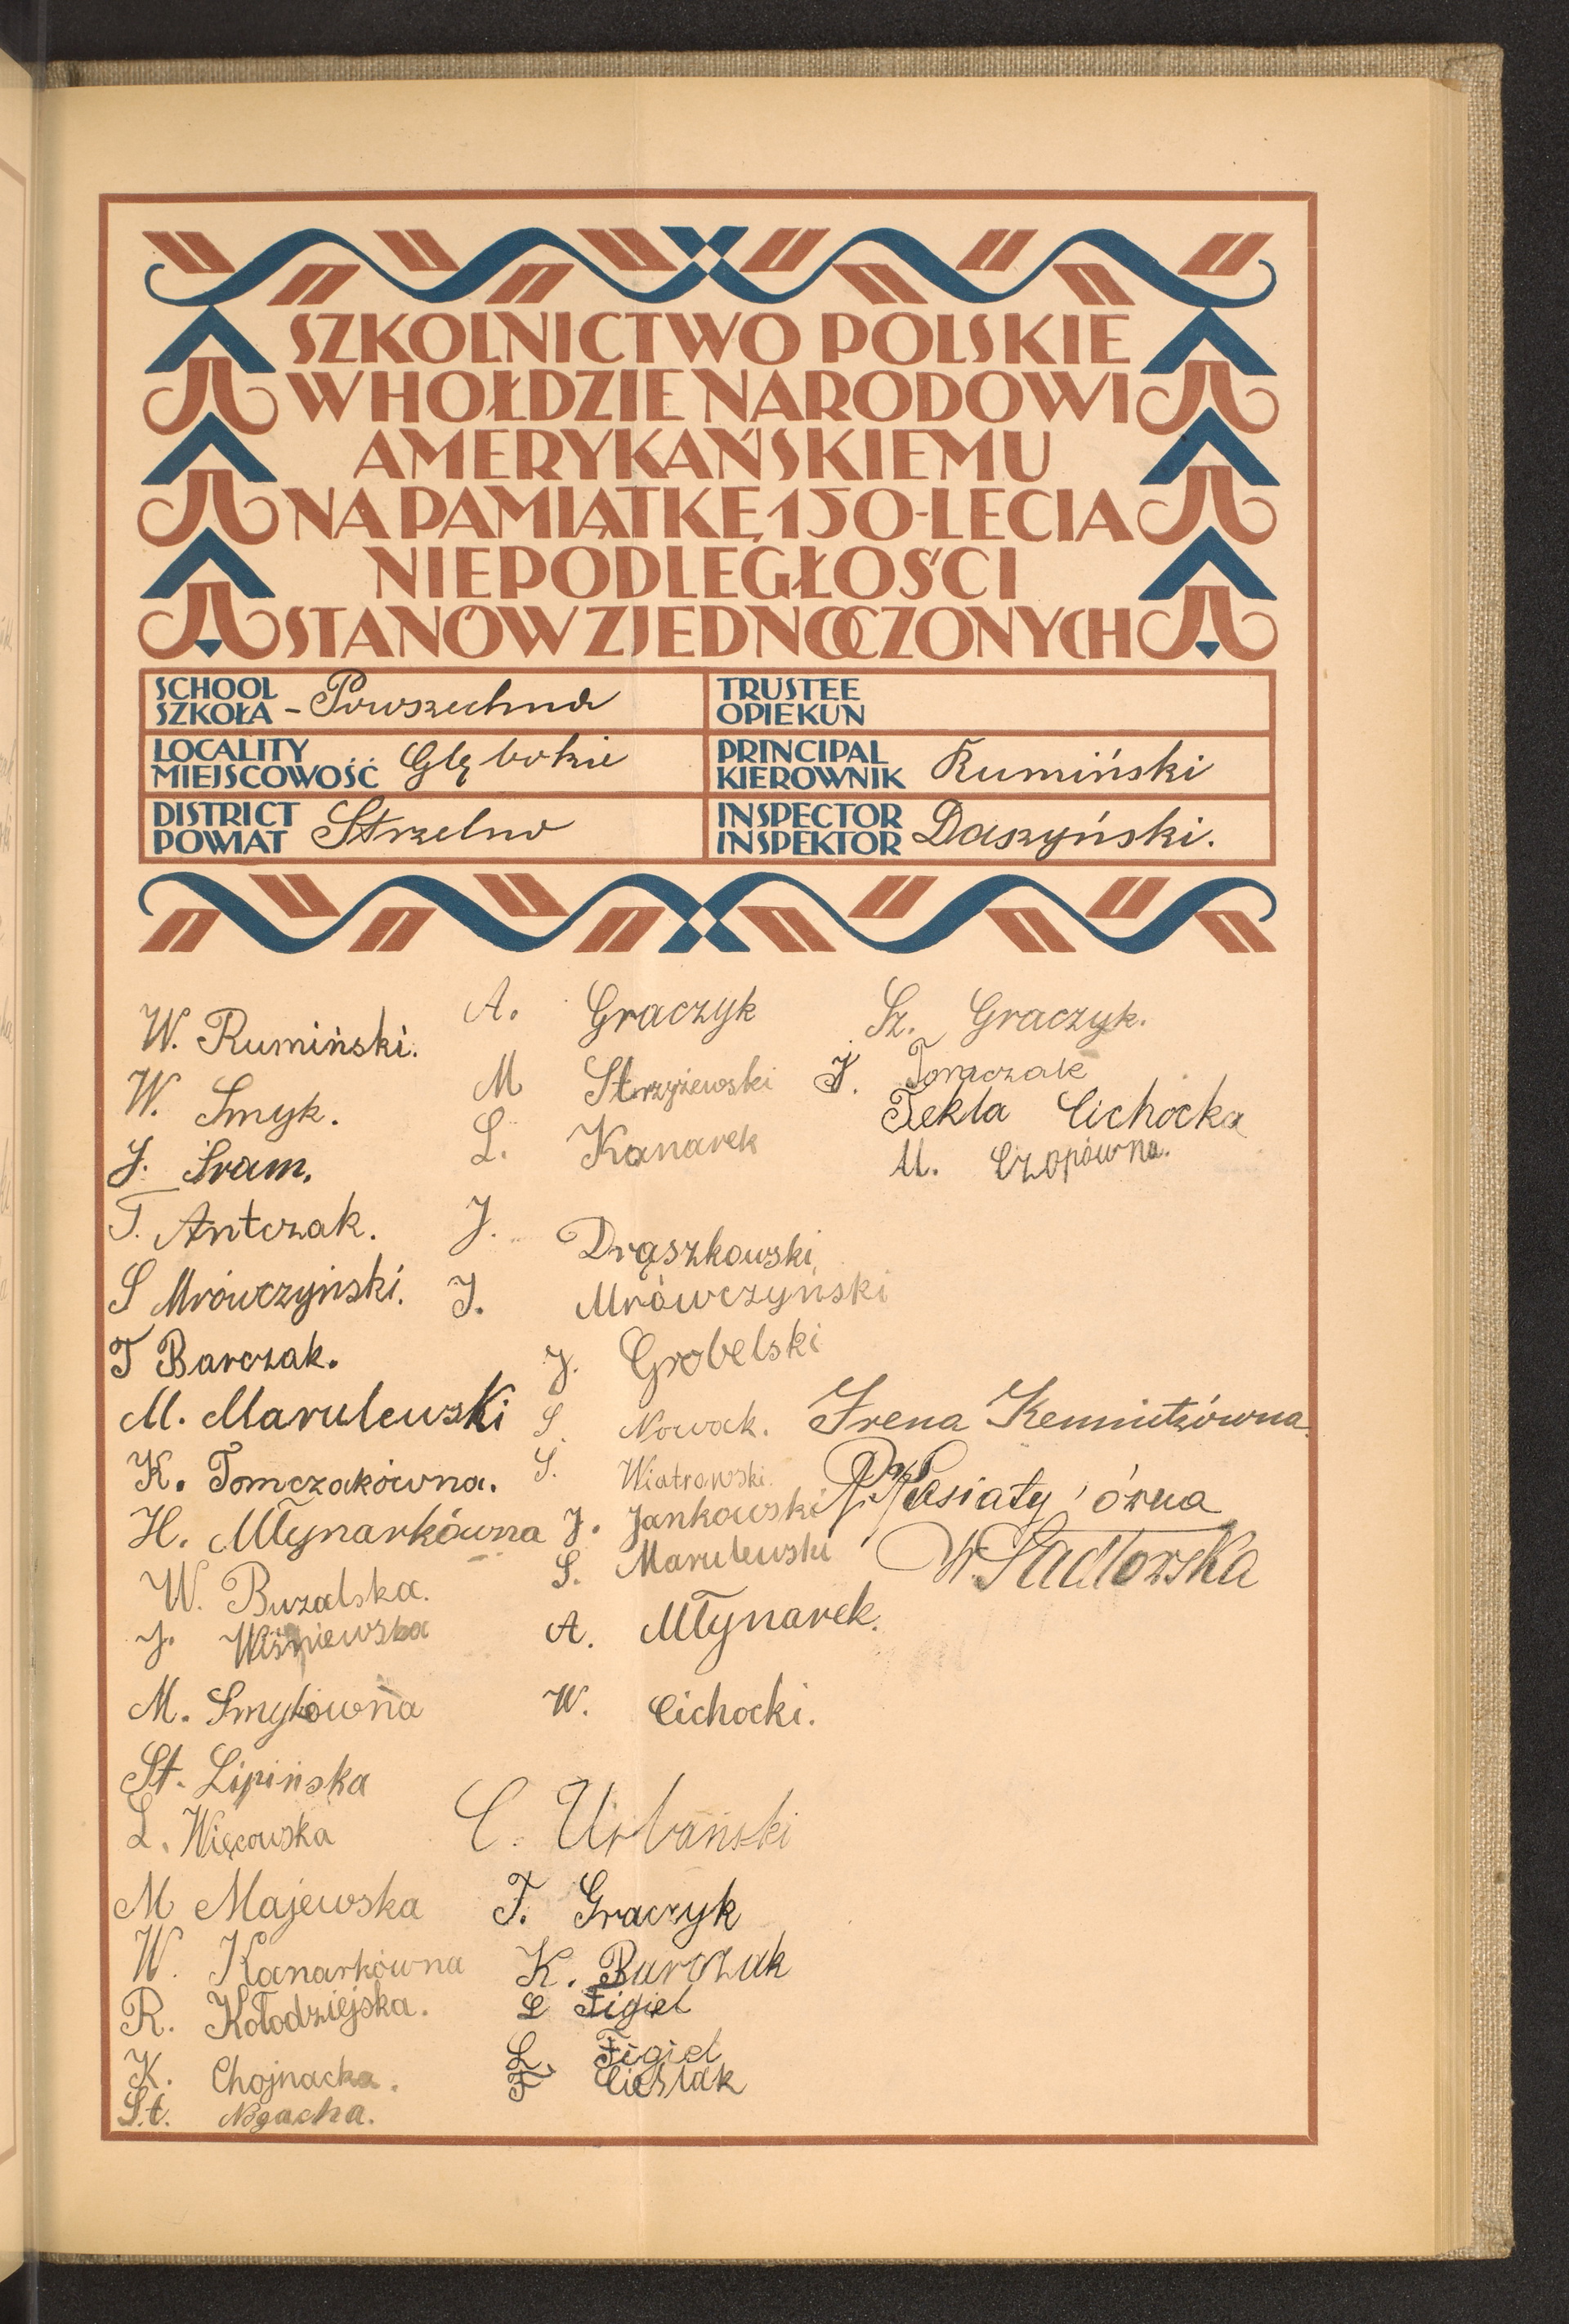 SZKOLNICTWO POLSKIE
W HOŁDZIE NARODOWI
AMERYKAŃSKIEMU
NA PAMIĄTKĘ 150-LECIA
NIEPODLEGŁOŚCI
STANÓW ZJEDNOCZONYCH
SCHOOL
SZKOŁA - Powszechna
TRUSTEE
OPIEKUN
LOCALITY
MIEJSCOWOŚĆ Głębokie
PRINCIPAL
KIEROWNIK Rumiński
DISTRICT
POWIAT Strzelno
INSPECTOR
INSPEKTOR Daszyński.
W. Rumiński.
W. Smyk.
J. Sram.
T. Antczak.
S Mrówczyński.
T Barczak.
M. Marulewski
K. Tomczakówna.
H. Młynarkówna
W. Buzalska.
J. Wiśniewska
M. Smykówna
St. Lipińska
L. Więcowska
M Majewska
W. Kanarkówna
R. Kołodziejska.
K. Chojnacka.
St. Nogacha.
A. Graczyk
M Strzyżewski
L. Kanarek
J. Drąszkowski
J. Mrówczyński
J. Grobelski
S. Nowack.
S. Wiatrowski.
J. Jankowski
S. Marulewski
A. Młynarek.
W. Cichocki.
C. Urbański
F. Graczyk
K. Barczak
L Figiel
L. Figiel
F. Cieślak
Sz. Graczyk.
J. Tomczak
Tekla Cichocka
M. Czopówna.
Irena Kemnitzówna
W. Sadłowska